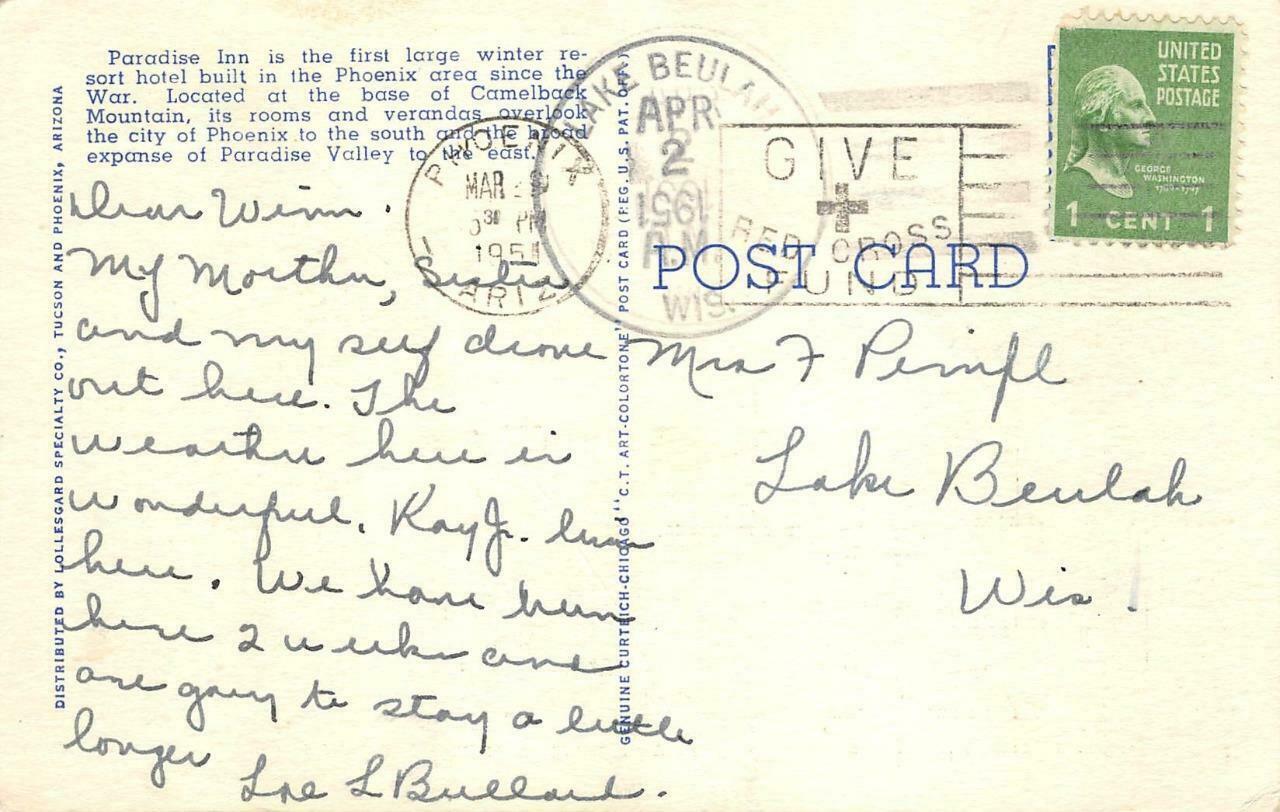 Paradise Inn is the first large winter re-
sort hotel built in the Phoenix area since the
War. Located at the base of Camelback
Mountain, its rooms and verandas overlook
the city of Phoenix to the south and the broad
expanse of Paradise Valley to the east.
Dear Winn.
My Mother, Sister
and my self drove
out here. The
weather here is
wonderful. Kay Jr. lives
here. We have been
here 2 weeks and
are going to stay a little
longer
L Bullard.
DISTRIBUTED BY LOLLESGARD SPECIALTY CO., TUCSON AND PHOENIX, ARIZONA
GENUINE CURTEICH-CHICAGO "C.T. ART-COLORTONE" POST CARD (REG. U.S. PAT. OFF.)
PHOENIX
MAR
PM
1951
ARIZ
LAKE BEULAH
APR
2
1951
P.M.
WIS.
GIVE
RED CROSS
FUND
UNITED
STATES
POSTAGE
GEORGE
WASHINGTON
1 CENT 1
POST CARD
Mrs F Pimpl
Lake Beulah
Wis.